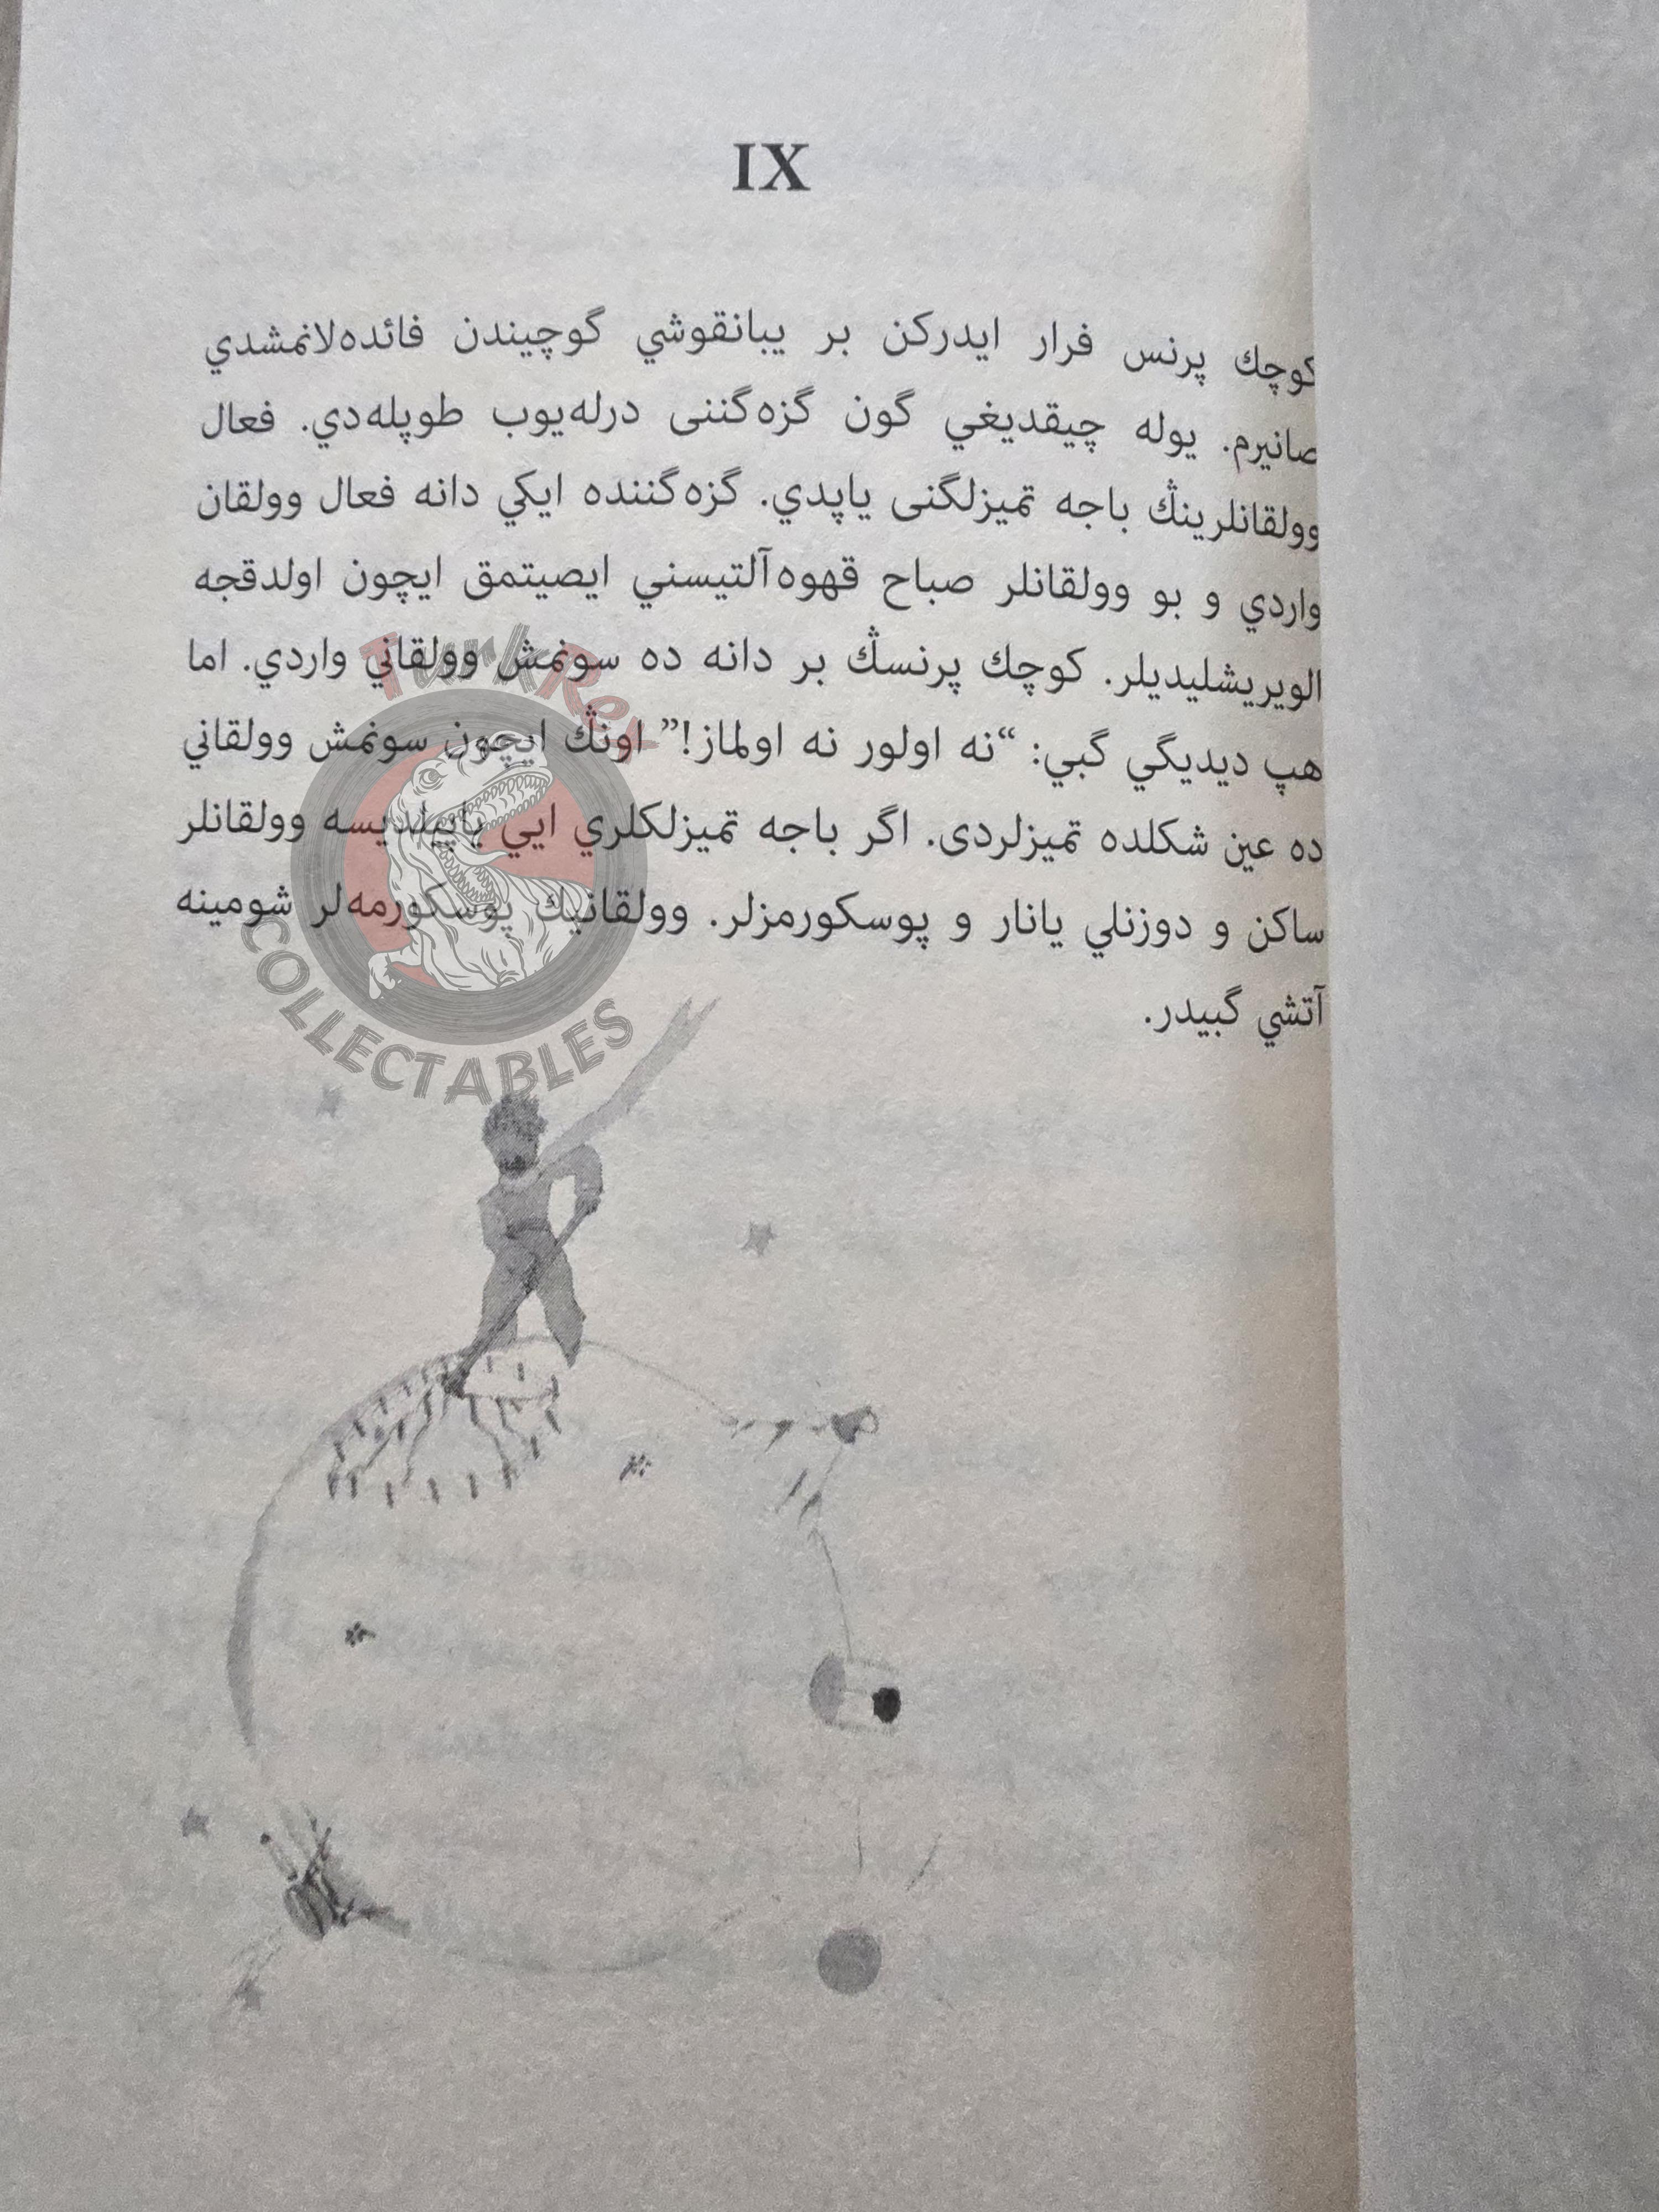 IX
كوچك پرنس فرار ايدركن بر يبانقوشي گوچيندن فائده‌لانمشدي
صانيرم. يوله چيقديغي گون گزه‌گننى درله‌يوب طوپله‌دي. فعال
وولقانلرينڭ باجه تميزلگنى ياپدي. گزه‌گننده ايكي دانه فعال وولقان
واردي و بو وولقانلر صباح قهوه‌آلتيسني ايصيتمق ايچون اولدقجه
الويريشليديلر. كوچك پرنسڭ بر دانه ده سونمش وولقاني واردي. اما
هپ ديديگي گبي: “نه اولور نه اولماز!” اونڭ ايچون سونمش وولقاني
ده عين شكلده تميزلردى. اگر باجه تميزلكلري ايي ياپيلديسه وولقانلر
ساكن و دوزنلي يانار و پوسكورمزلر. وولقانيك پوسكورمه‌لر شومينه
آتشي گبيدر.
TurkRex
COLLECTABLES